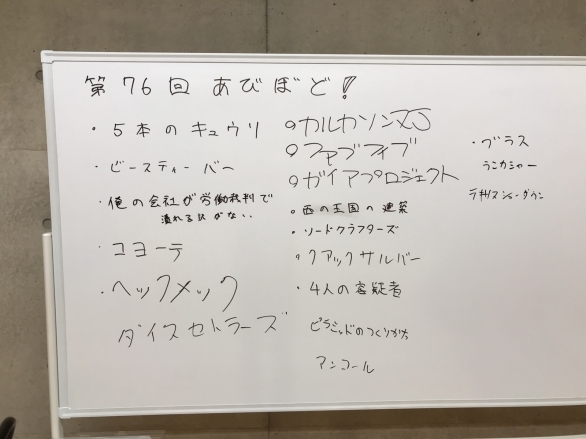 第76回 あびぼど!
・5本のキュウリ
・ビースティーバー
・俺の会社が労働裁判で
潰れる訳がない
・コヨーテ
・ヘックメック
ダイスセトラーズ
○カルカソンヌJ
○ファブフィブ
○ガイアプロジェクト
・西の王国の建築
・ソードクラフターズ
・クアックサルバー
・4人の容疑者
ピラミッドのつくりかた
アンコール
・ブラス
ランカシャー